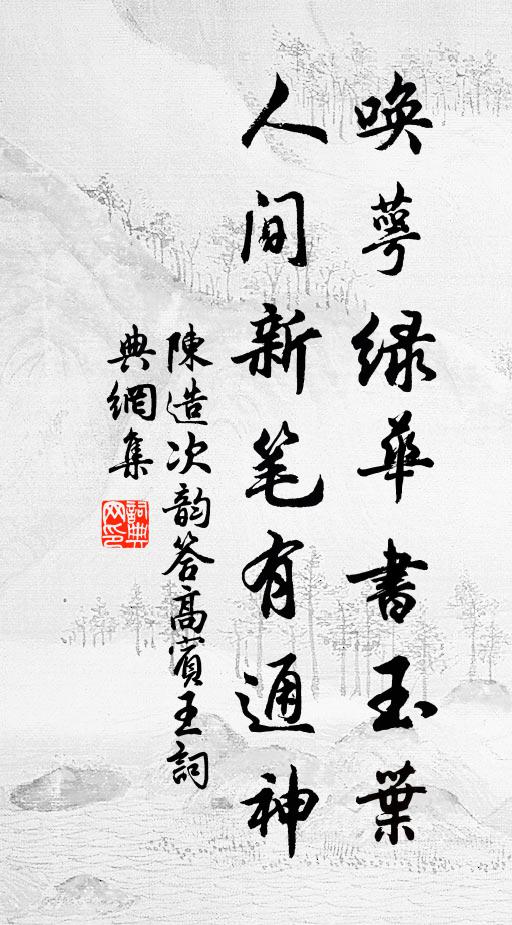 唤萼绿华书玉葉
人间新笔有通神
陳造次韵答高賓王詞
典網集
詞典网印